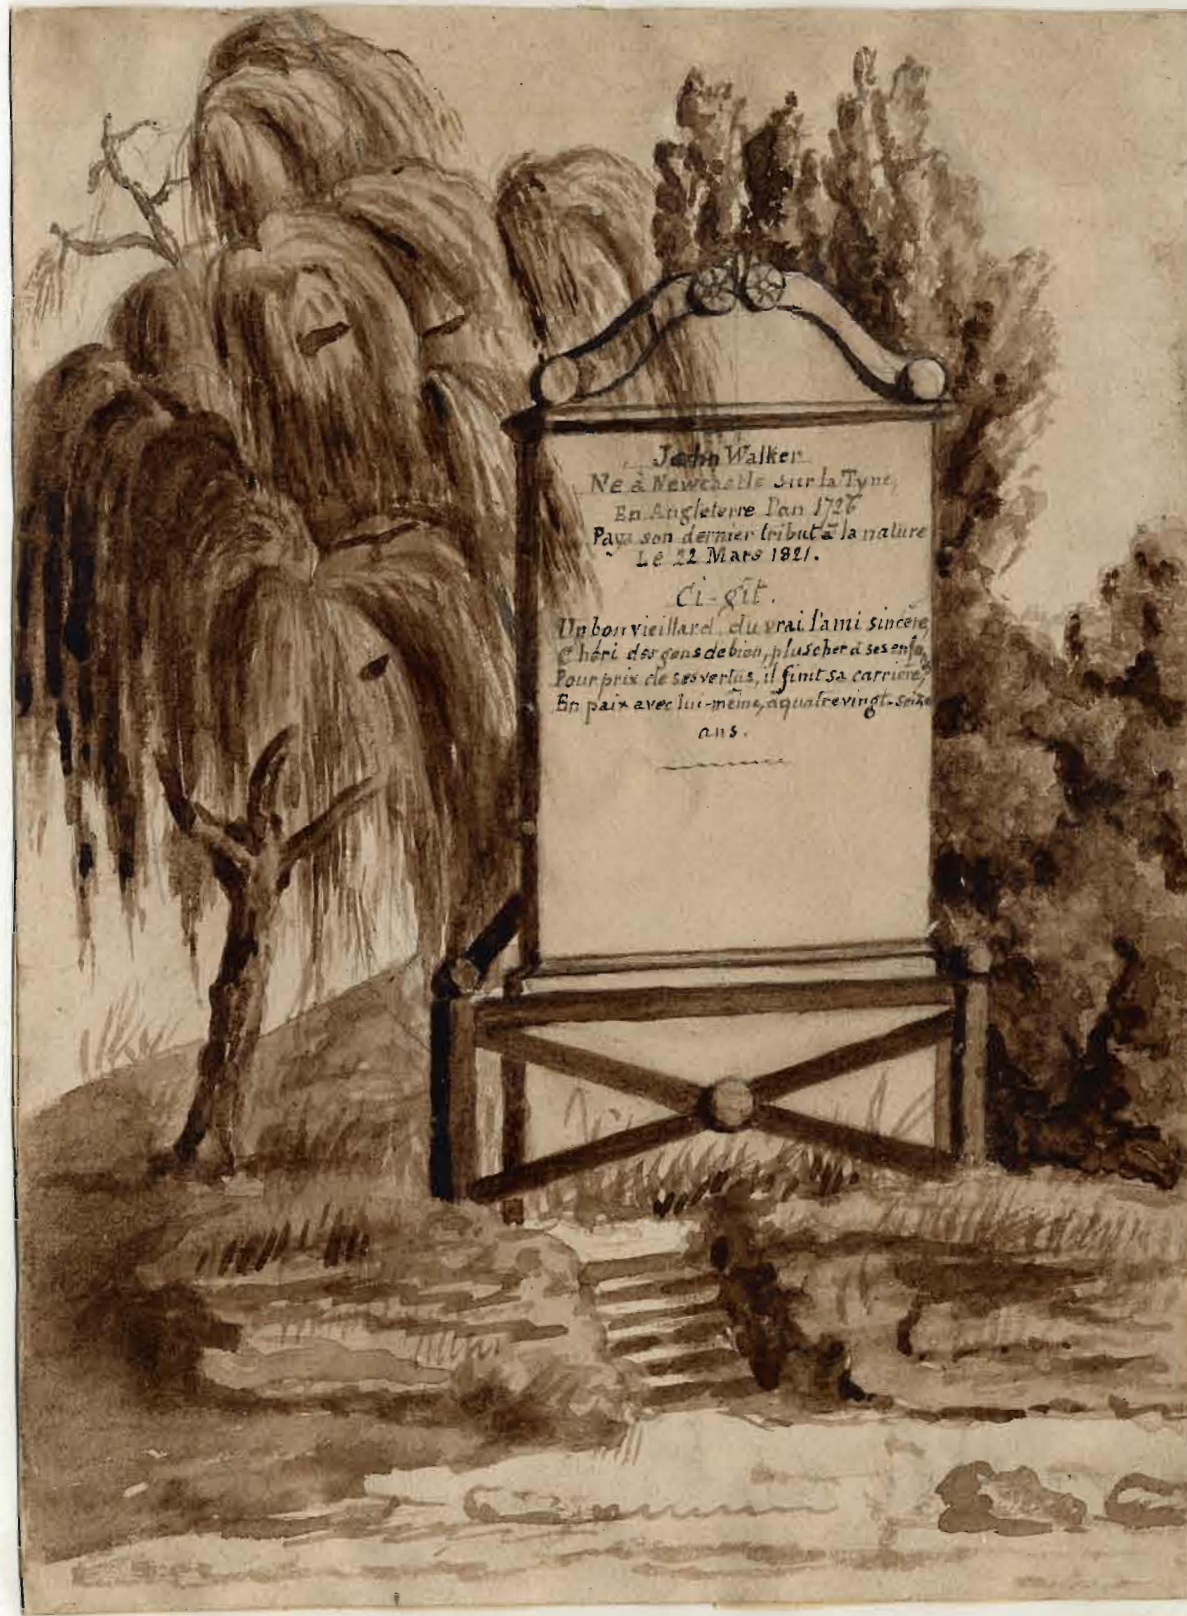 John Walker
Ne à Newcbelle sur la Tyne,
En Angleterre l'an 1726
Paya son dernier tribut à la nature
Le 22 Mars 1821.
Ci-gît.
Un bon vieillard, du vrai l'ami sincère,
Chéri des gens de bien, plus cher à ses enfs,
Pour prix de ses vertus, il finit sa carrière,
En paix avec lui-même, à quatre vingt-seize
ans.